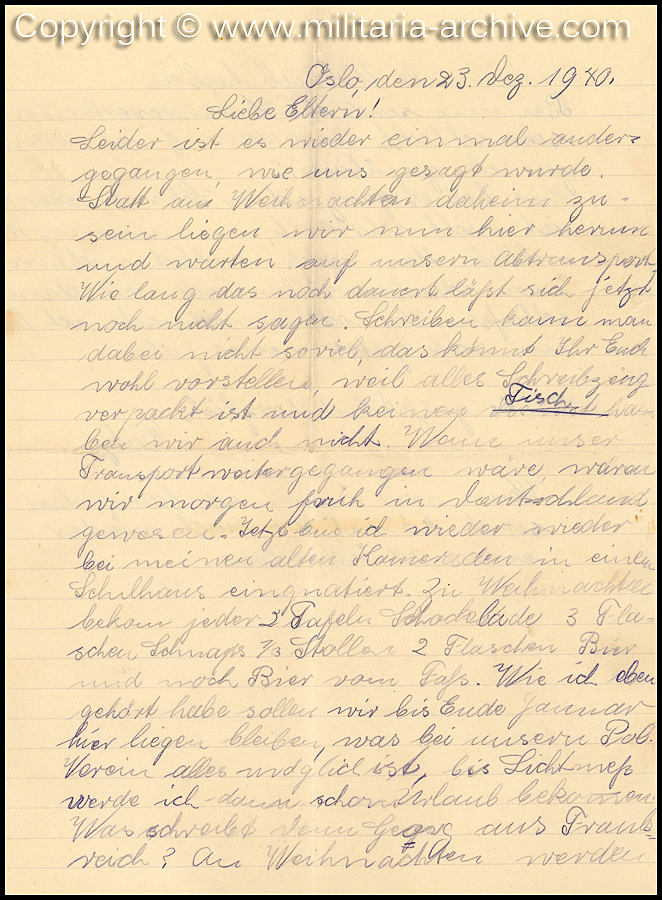 Copyright © www.militaria-archive.com
Oslo, den 23. Dez. 1940.
Liebe Eltern!
Leider ist es wieder einmal anders
gegangen, wie uns gesagt wurde.
Statt an Weihnachten daheim zu-
sein liegen wir nun hier herum
und warten auf unsern Abtransport.
Wie lang das noch dauert läßt sich jetzt
noch nicht sagen. Schreiben kann man
dabei nicht soviel, das könnt Ihr Euch
wohl vorstellen, weil alles Schreibzeug
verpackt ist und keinen Tisch ha-
ben wir auch nicht. Wenn unser
Transport weitergegangen wäre, wären
wir morgen früh in Deutschland
gewesen. Jetzt bin ich wieder wieder
bei meinen alten Kameraden in einem
Schulhaus einquatiert. Zu Weihnachten
bekom jeder 2 Tafeln Schocklade 3 Fla-
schen Schnaps 1/3 Stollen 2 Flaschen Bier
und noch Bier vom Faß. Wie ich eben
gehört habe sollen wir bis Ende Januar
hier liegen bleiben, was bei unsern Pol.
Verein alles möglich ist, bis Lichtmeß
werde ich dann schon Urlaub bekomen.
Was schreibt denn Georg aus Frank-
reich? An Weihnachten werden